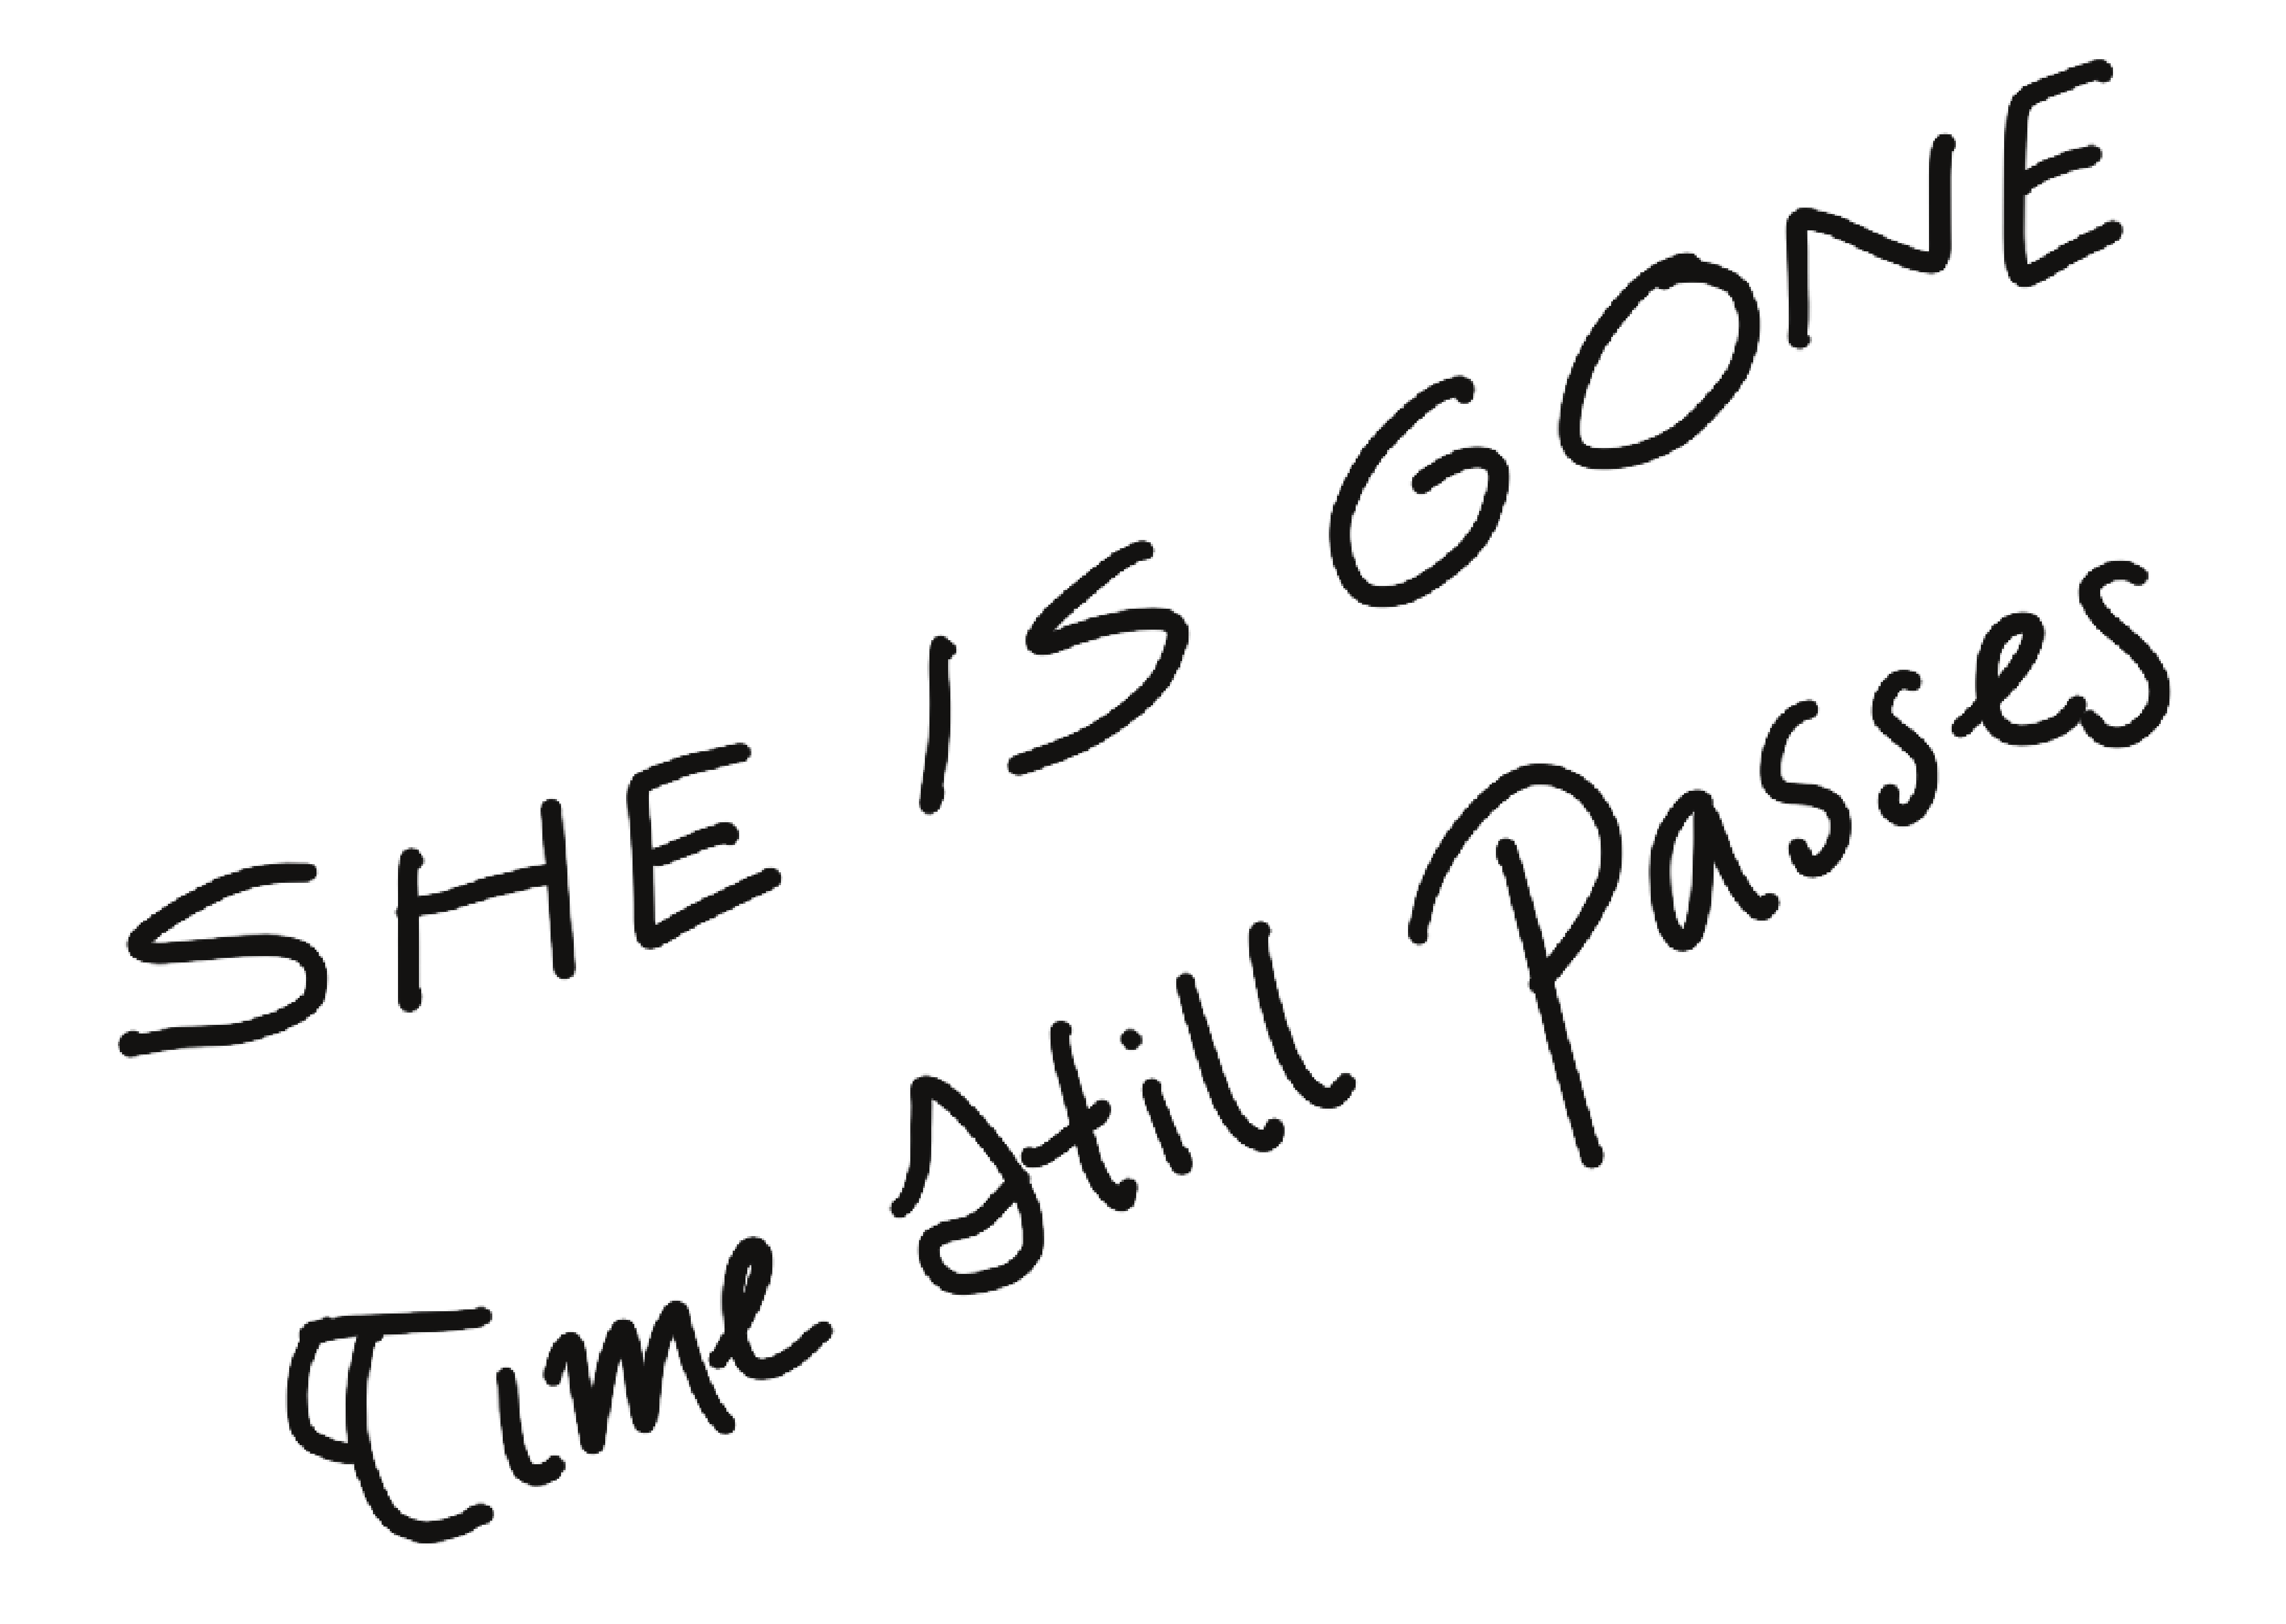 SHE IS GONE
Time still Passes